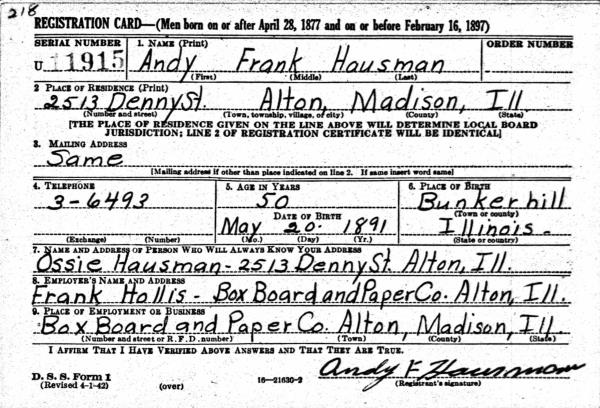 218
REGISTRATION CARD—(Men born on or after April 28, 1877 and on or before February 16, 1897)
SERIAL NUMBER 1. NAME (Print) ORDER NUMBER
U 11915 Andy Frank Hausman
(First) (Middle) (Last)
2 PLACE OF RESIDENCE (Print)
2513 Denny St. Alton, Madison, Ill.
(Number and street) (Town, township, village, or city) (County) (State)
[THE PLACE OF RESIDENCE GIVEN ON THE LINE ABOVE WILL DETERMINE LOCAL BOARD
JURISDICTION; LINE 2 OF REGISTRATION CERTIFICATE WILL BE IDENTICAL]
3. MAILING ADDRESS
Same
[Mailing address if other than place indicated on line 2. If same insert word same]
4. TELEPHONE 5. AGE IN YEARS 6. PLACE OF BIRTH
3-6493 50 Bunkerhill
DATE OF BIRTH (Town or county)
May 20. 1891 Illinois-
(Exchange) (Number) (Mo.) (Day) (Yr.) (State or country)
7. NAME AND ADDRESS OF PERSON WHO WILL ALWAYS KNOW YOUR ADDRESS
Ossie Hausman-2513 Denny St. Alton, Ill.
8. EMPLOYER'S NAME AND ADDRESS
Frank Hollis - Box Board and Paper Co. Alton, Ill.
9. PLACE OF EMPLOYMENT OR BUSINESS
Box Board and Paper Co. Alton, Madison, Ill.
(Number and street or R.F.D. number) (Town) (County) (State)
I AFFIRM THAT I HAVE VERIFIED ABOVE ANSWERS AND THAT THEY ARE TRUE.
Andy F Hausman
D. S. S. Form 1
(Revised 4-1-42) (over) 16—21630-2 (Registrant's signature)